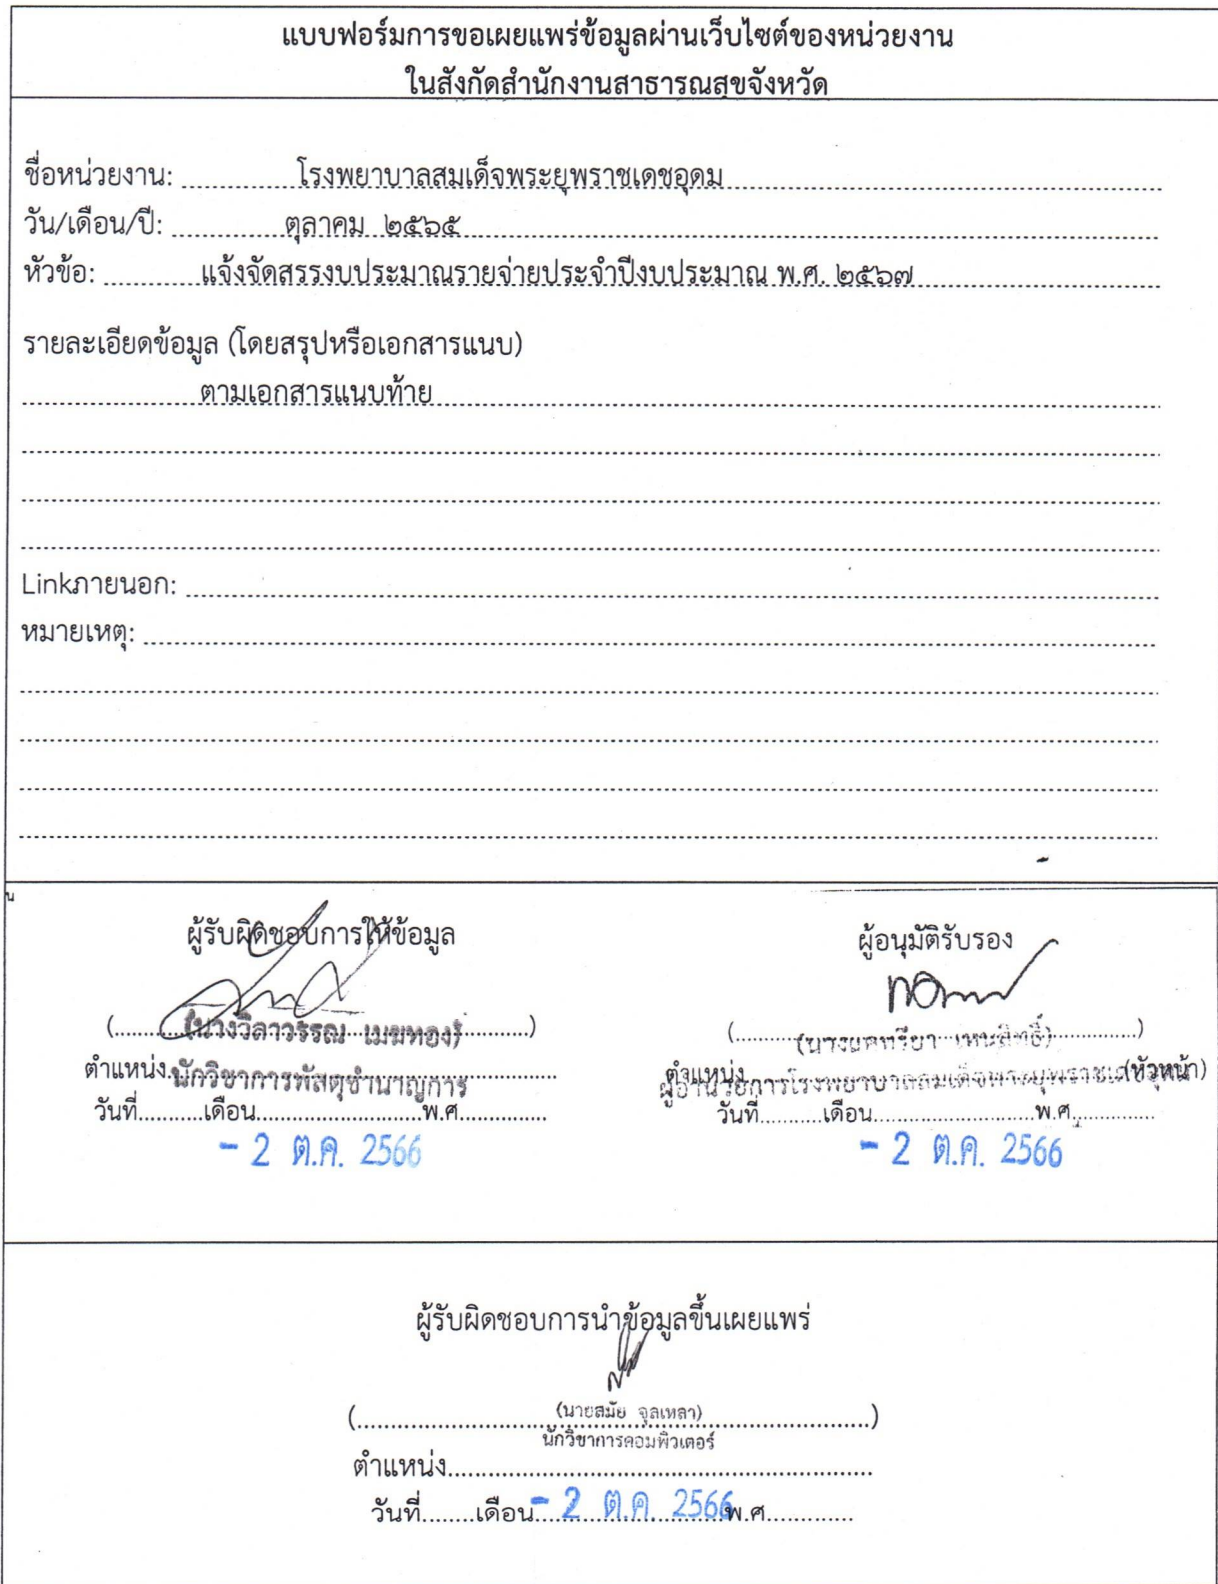 แบบฟอร์มการขอเผยแพร่ข้อมูลผ่านเว็บไซต์ของหน่วยงาน
ในสังกัดสำนักงานสาธารณสุขจังหวัด
ชื่อหน่วยงาน: โรงพยาบาลสมเด็จพระยุพราชเดชอุดม
วัน/เดือน/ปี: ตุลาคม ๒๕๖๕
หัวข้อ: แจ้งจัดสรรงบประมาณรายจ่ายประจำปีงบประมาณ พ.ศ. ๒๕๖๗
รายละเอียดข้อมูล (โดยสรุปหรือเอกสารแนบ)
ตามเอกสารแนบท้าย
Linkภายนอก:
หมายเหตุ:
ผู้รับผิดชอบการให้ข้อมูล
(นางวิลาวรรณ เมฆทอง)
ตำแหน่ง นักวิชาการพัสดุชำนาญการ
วันที่...........เดือน............................พ.ศ...............
- 2 ต.ค. 2566
ผู้อนุมัติรับรอง
ตำแหน่ง (หัวหน้า)
ผู้อำนวยการโรงพยาบาลสมเด็จพระยุพราชเดชอุดม
วันที่...........เดือน............................พ.ศ...............
- 2 ต.ค. 2566
ผู้รับผิดชอบการนำข้อมูลขึ้นเผยแพร่
(นายสมัย จุลเหลา)
นักวิชาการคอมพิวเตอร์
ตำแหน่ง
วันที่........เดือน - 2 ต.ค. 2566 พ.ศ.............